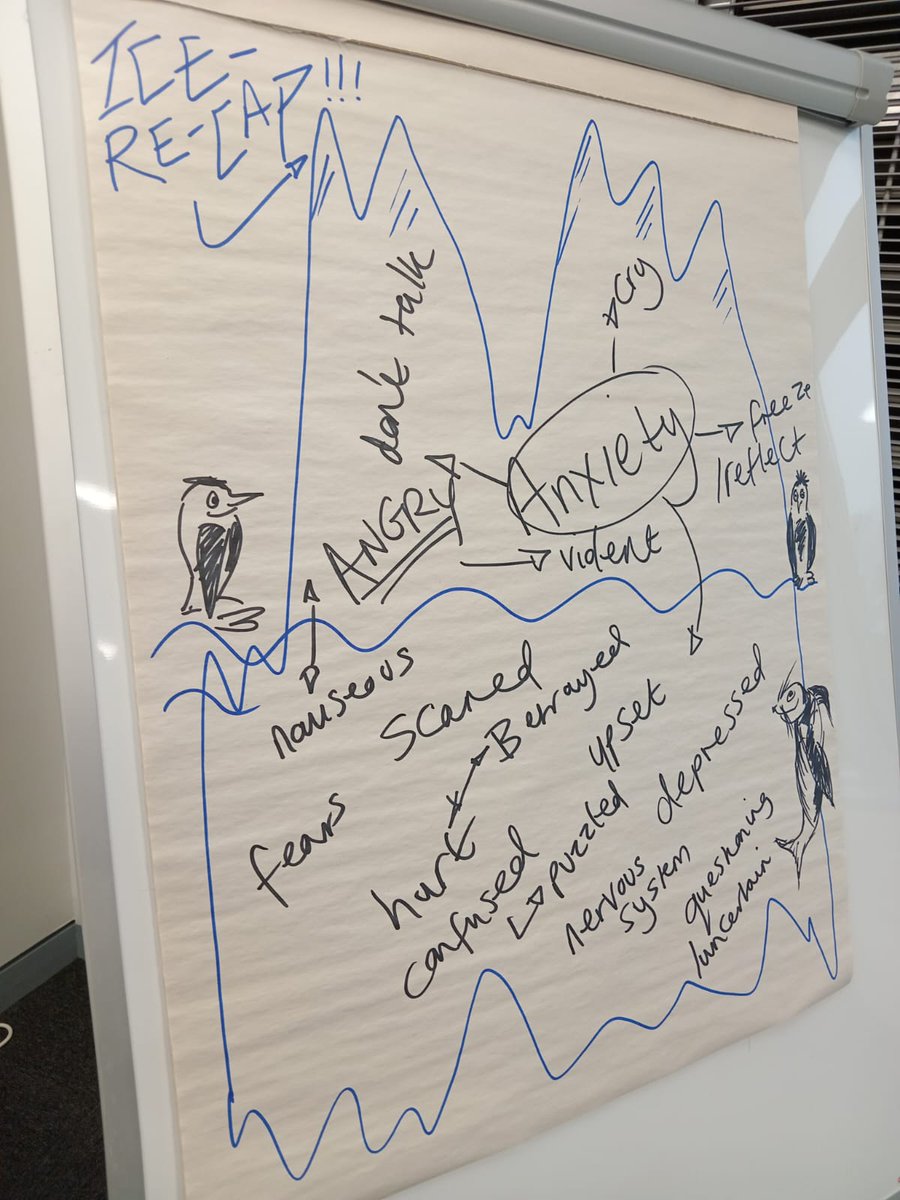 ICE-
RE-CAP!!!
don't talk
cry
Anxiety
freeze
/reflect
ANGRY
vident
nauseous
scared
Betrayed
upset
depressed
fears
hurt
confused
puzzled
nervous
system
questioning
/uncertain